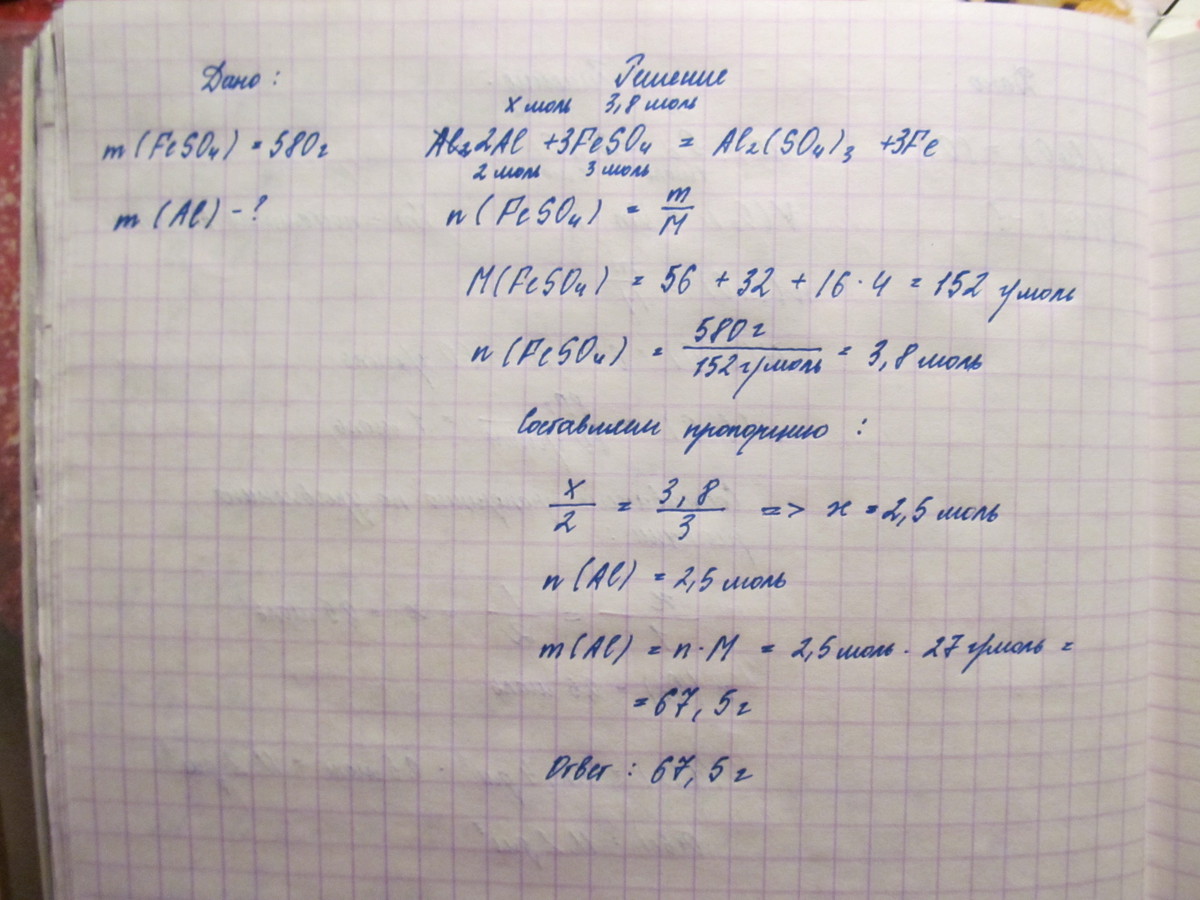 Дано:
Решение
x моль 3,8 моль
m (FeSO₄) = 580 г
2Al + 3FeSO₄ = Al₂(SO₄)₃ + 3Fe
2 моль 3 моль
m (Al) - ?
n (FeSO₄) = m/M
M(FeSO₄) = 56 + 32 + 16 · 4 = 152 г/моль
n (FeSO₄) = 580 г / 152 г/моль = 3,8 моль
Составляем пропорцию :
x/2 = 3,8/3 => x = 2,5 моль
n (Al) = 2,5 моль
m(Al) = n · M = 2,5 моль · 27 г/моль =
= 67,5 г
Ответ : 67,5 г